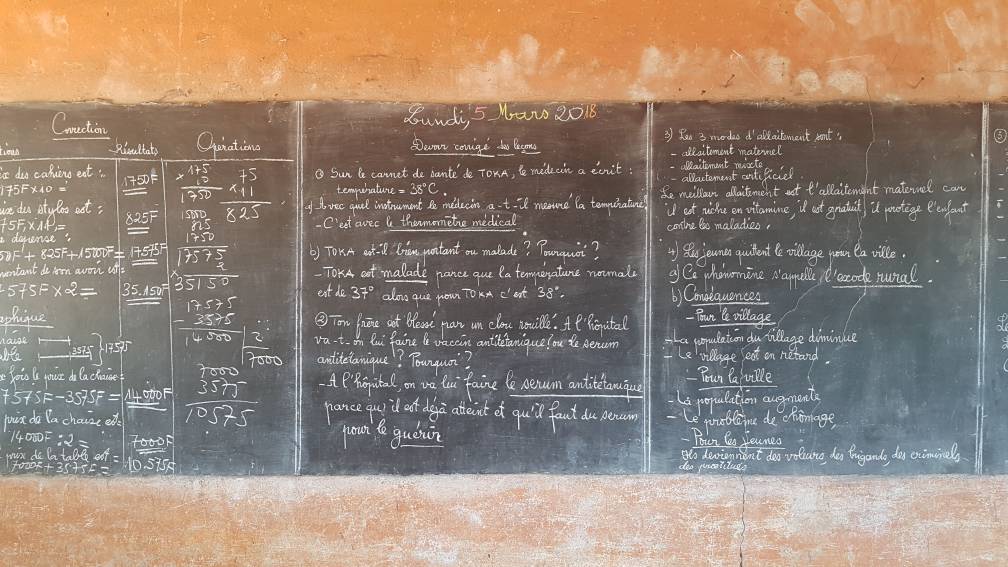 Correction
Résultats
Opérations
des cahiers est :
175F x 10 =
1750F
des stylos est :
75F x 11 =
825F
dépense :
+ 825F + 15000F =
17575F
montant de son avoir est :
17575F x 2 =
35.150F
3575
17575
fois le prix de la chaise =
17575F - 3575F =
14000F
prix de la chaise est :
14000F : 2 =
7000F
prix de la table est =
7000F + 3575F =
10.575F
x 175
10
1750
75
x 11
825
825
1750
17575
x 2
35150
17575
- 3575
14000
2
7000
7000
3575
10575
Lundi, 5 Mars 2018
Devoir corrigé des leçons
① Sur le carnet de santé de TOKA, le médecin a écrit :
température = 38°C.
a) Avec quel instrument le médecin a-t-il mesuré la température
- C'est avec le thermomètre médical
b) TOKA est-il bien portant ou malade ? Pourquoi ?
- TOKA est malade parce que la température normale
est de 37° alors que pour TOKA c'est 38°.
② Ton frère est blessé par un clou rouillé. A l'hôpital
va-t-on lui faire le vaccin antitétanique ou le serum
antitétanique ? Pourquoi ?
- A l'hôpital, on va lui faire le serum antitétanique
parce qu'il est déjà atteint et qu'il faut du serum
pour le guérir
3) Les 3 modes d'allaitement sont :
- allaitement maternel
- allaitement mixte
- allaitement artificiel
Le meilleur allaitement est l'allaitement maternel car
il est riche en vitamine, il est gratuit, il protège l'enfant
contre les maladies.
4) Les jeunes quittent le village pour la ville.
a) Ce phénomène s'appelle l'exode rural.
b) Conséquences
- Pour le village
- La population du village diminue
- Le village est en retard
- Pour la ville
- La population augmente
- Le problème de chômage
- Pour les jeunes
Ils deviennent des voleurs, des brigands, des criminels
des prostitués
⑤